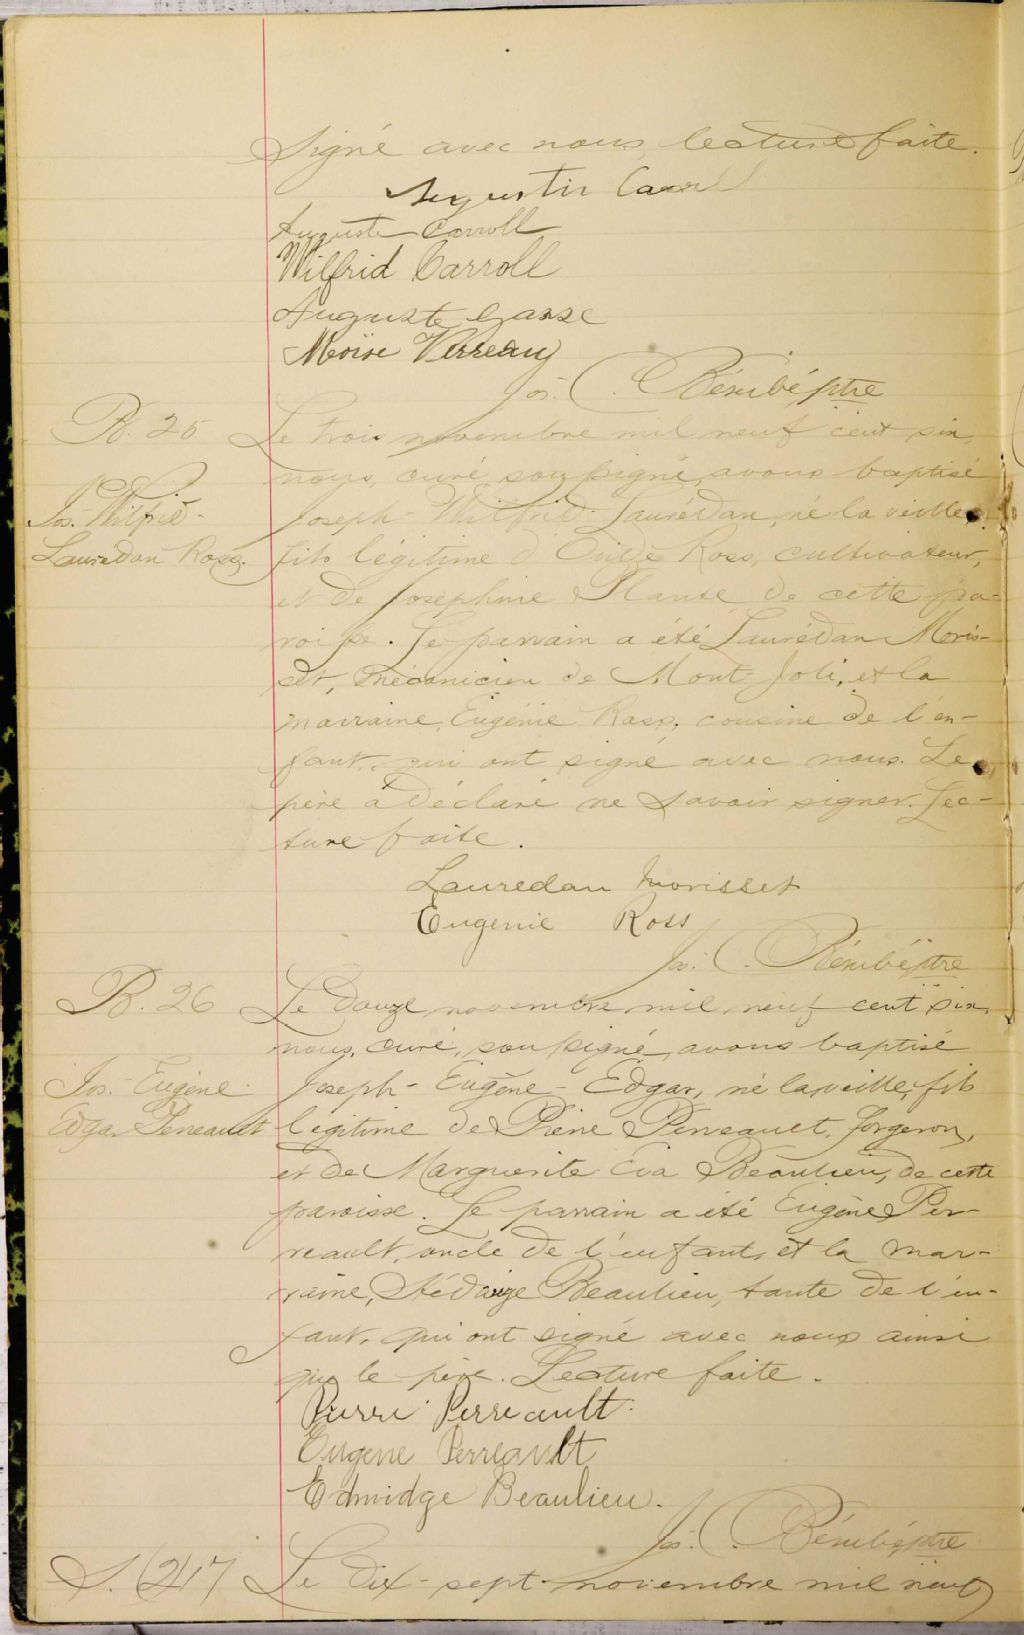 signé avec nous, lecture faite.
Augustin Carroll
Auguste Carroll
Wilfrid Carroll
Auguste Gasse
Moïse Verreau
Jos. C. Bérubé, ptre
B. 25
Le trois novembre mil neuf cent six,
nous, curé soussigné, avons baptisé
Jos. Wilfrid-
Joseph Wilfrid Laurédan, né la veille,
Laurédan Ross.
fils légitime d'Ovide Ross, cultivateur,
et de Joséphine Plante de cette pa-
roisse. Le parrain a été Laurédan Moris-
set, mécanicien de Mont-Joli, et la
marraine, Eugénie Ross, cousine de l'en-
fant, qui ont signé avec nous. Le
père a déclaré ne savoir signer. Lec-
ture faite.
Lauredan Morisset
Eugenie Ross
Jos. C. Bérubé, ptre
B. 26
Le douze novembre mil neuf cent six,
nous, curé, soussigné, avons baptisé
Jos. Eugène
Joseph-Eugène-Edgar, né la veille, fils
Edgar Peneault
légitime de Pierre Perreault, forgeron,
et de Marguerite Eva Beaulieu, de cette
paroisse. Le parrain a été Eugène Per-
reault, oncle de l'enfant, et la mar-
raine, Beaulieu, tante de l'en-
fant, qui ont signé avec nous ainsi
que le père. Lecture faite.
Pierre Perreault
Eugene Perreault
Edmidge Beaulieu.
Jos. C. Bérubé, ptre
S. (2) 17
Le dix-sept novembre mil neuf